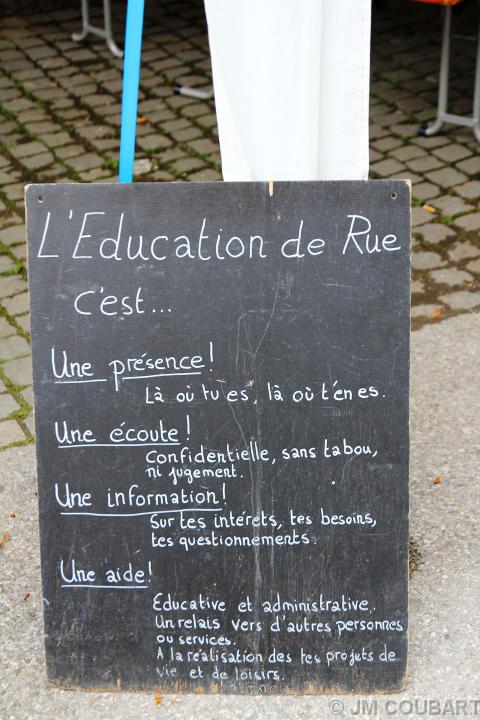 L'Education de Rue
c'est...
Une présence!
Là où tu es, là où t'én es.
Une écoute!
Confidentielle, sans tabou,
ni jugement.
Une information!
Sur tes intérets, tes besoins,
tes questionnements.
Une aide!
Educative et administrative.
Un relais vers d'autres personnes
ou services.
A la réalisation des tes projets de
vie et de loisirs.
© JM COUBART